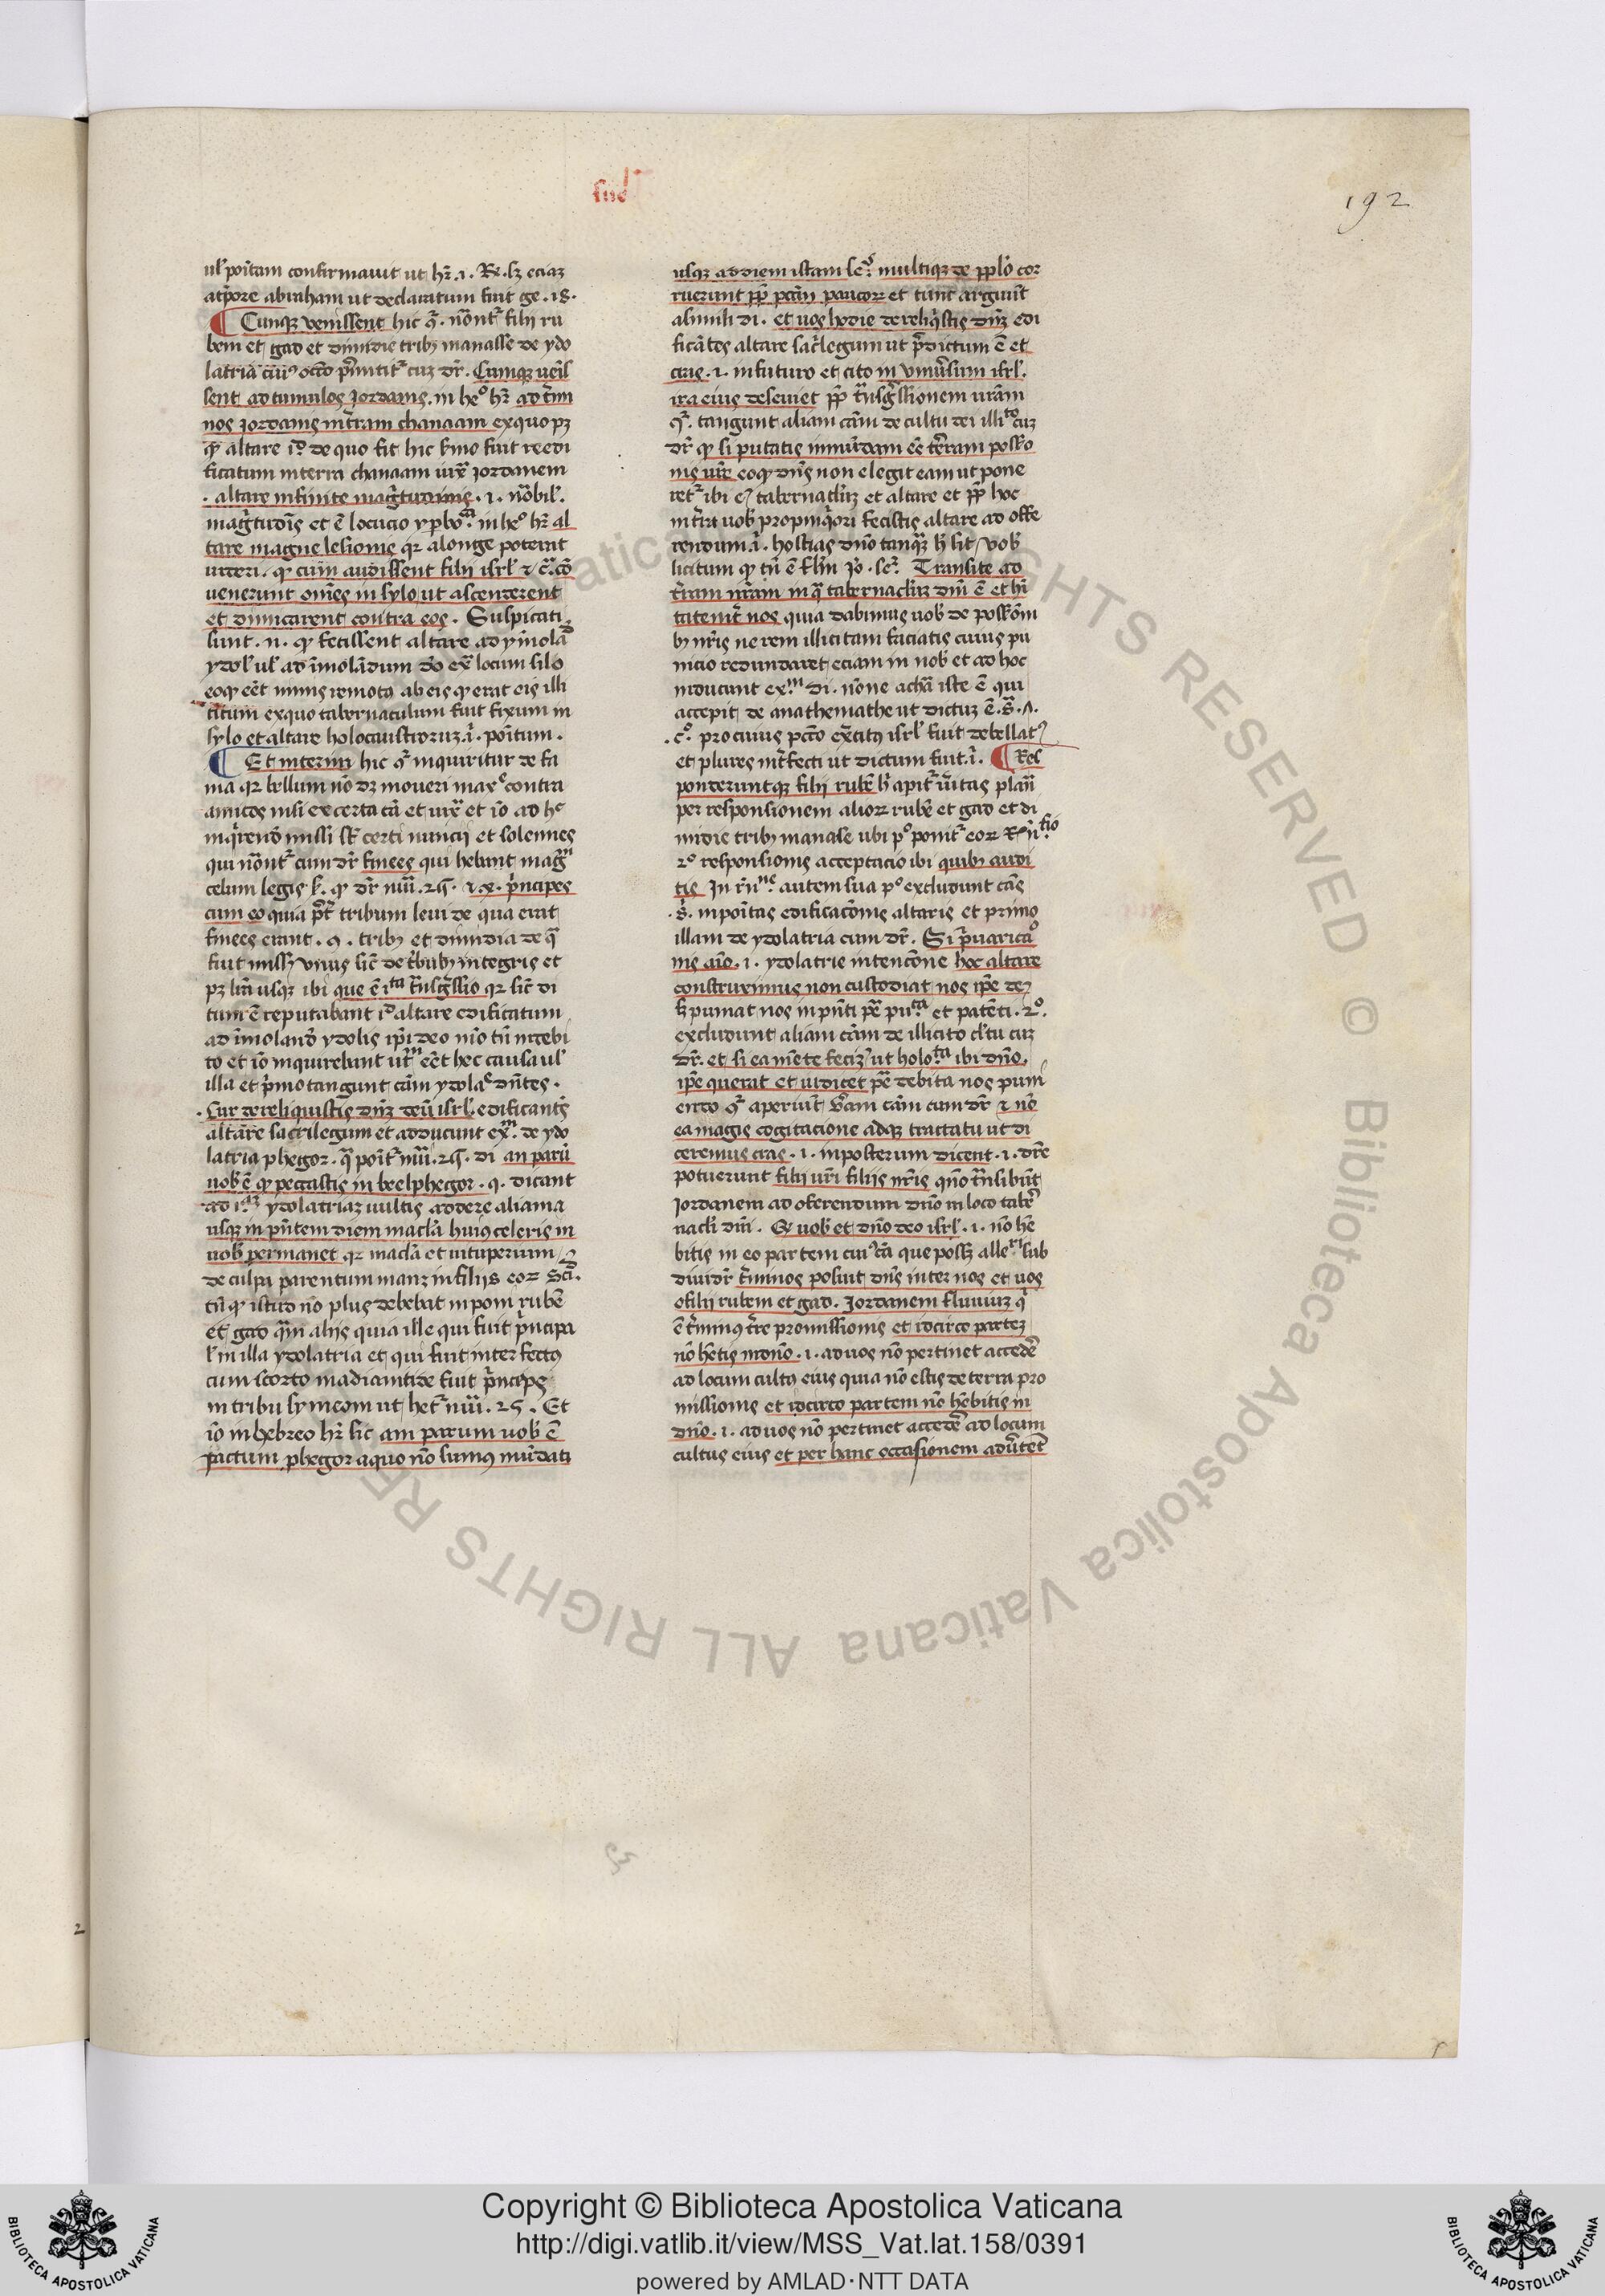 192
ul' positam confirmavit ut hr̄ .1. Re. sz eciaz
a tp̄ore abraham ut declaratum fuit ge. 18.
¶ Cunqz venissent hic q̄. nōnt᷑ filii ru
ben et gad et dimidie tribꝰ manasse de ydo
latria cuiꝰ occō p̄mitit᷑ cuz dr̄. Cumqz venis
sent ad tumulos Jordanis. in heᵒ hr̄ ad t̄mi
nos Jordanis in t̄ram chanaam ex quo pz
qꝫ altare iᵈ de quo fit hic sermo fuit reedi
ficatum in terra chanaam iux̄ Jordanem
. altare infinite magn̄tudinis .i. nōbil'.
magn̄tudīs et ē locucio yp̄boᶜᵃ. in heᵒ hr̄ al
tare magne lesionis qr a longe poterat
uideri. qꝫ cum audissent filii isrl' ⁊ c̄. cō
venerunt omēs in sylo ut ascenderent
et dimicarent contra eos. Suspicati
sunt .n. qꝫ fecissent altare ad ymolād
ydol' ul' ad īmolādum dō ex̄ locum silo
eo qꝫ eēt nimis remotꝰ ab eis qꝫ erat eis illi
citum ex quo tabernaculum fuit fixum in
sylo et altare holocaustroruz .ī. positum.
¶ Et interim hic q̄ inquiritur de fa
ma qr bellum nō dz moveri maxᵉ contra
amicos nisi ex certa cā et iux̄ et iō ad hᶜ
inq̄rendō missi st̄ certi nuncii et solennes
qui nōnt᷑ cum dr̄ finees qui hebant magn̄
celum legis
cum eo quia p̄t tribum levi de qua erat
finees erant .9. tribꝰ et dimidia de q̄
fuit missꝰ unus sic̄ de t̄bubꝰ integris et
pz lrā usqz ibi que ē ista t̄nsgr̄ssio qr sic̄ di
tum ē reputabant iᵈ altare edificatum
ad īmolandō ydolis ip̄i deo mō tn̄ indebi
to et iō inquirebant utrᵐ eēt hec causa ul'
illa et p̄mo tangunt cām ydolaᵉ dn̄tes.
. Cur dereliquistis dn̄z deū isrl'. edificantes
altare sacrilegum et adducunt exᵐ. de ydo
latria phegor. q̄ point᷑ nūi. 25. di an parū
nob' ē qꝫ peccastis in beelphegor .q. dicant
ad iᵃᵐ ydolatriaz vultis addere aliam a
usqz in pn̄tem diem macl'a huiꝰ celeris in
vob' permanet qr macl'a et vituperium
de culpa parentum manz in filiis eoꝝ scd'.
tn̄ qꝫ istud nō plus debebat inponi rubē
et gad q̄m aliis quia ille qui fuit p̄ncipa
l' in illa ydolatria et qui fuit interfectꝰ
cum scorto madianitide fuit p̄nceps
in tribu symeom ut het᷑ nūi. 25. Et
iō in hebreo hr̄ sic am parum vob' ē
pactum phegor a quo nō sumꝰ mūdati
usqz ad diem istam seᵒ. multiqz de ppl'o cor
ruerunt pp̄ pctm̄ paucoꝝ et tunc arguūt
a simili di. et vos hodie dereliq̄stis dn̄z edi
ficātes altare sac̄legum ut p̄dictum ē et
cras .i. in futuro et cito in vniv̄sum isrl'.
ira eius deseviet pp̄ t̄nsgr̄ssionem vrām
q᷑ tangunt aliam cām de cultu dei illiᵗᵒ cuz
dr̄ qꝫ si putatis inmūdam eē t̄ram possio
nis vr̄e eo qꝫ dn̄s non elegit eam ut pone
ret᷑ ibi eꝰ tabernacl'uz et altare et pp̄ hoc
in t̄ra vob' propinq̄ori fecistis altare ad offe
rendum .i. hostias dn̄o tanq̄z h' sit vob'
licitum
t̄ram nrām in q̄ tabernacl'uz dn̄i ē et hī
tate int̄ nos quia dabimus vob' de possiōī
bꝰ nr̄is ne rem illicitam faciatis cuius pu
nicio redundaret eciam in nob' et ad hoc
inducunt exᵐ. di. nōne achā iste ē qui
accepit de anathemathe ut dictuz ē .s̄. 7.
. c̄. pro cuius pccō ex̄citꝰ isrl' fuit debellatꝰ
et plures int̄fecti ut dictum fuit .ī. ¶ Res
ponderuntqz filii rubē h' apit᷑ v̄itas plan̄
per responsionem alioꝝ rubē et gad et di
midie tribꝰ manase ubi pᵒ ponit᷑ eoꝝ
2ᵒ responsionis acceptacio ibi quibꝰ audi
tis In
.s̄. inpōitas edificacōnis altaris et primo
illam de ydolatria cum dr̄. Si p̄varicaᵒ
nis aīo .i. ydolatrie intencōne hoc altare
construximus non custodiat nos ip̄e deꝰ
s' puniat nos in pn̄ti
excludunt aliam cām de illicito cl'tu cuz
dr̄. et si ea mēte feciꝰ ut holoᵗᵃ ibi dn̄o.
ip̄e querat et iudicet pē debita nos puni
endo q᷑ aperiūt v̄am cām cum dr̄ ⁊ nō
ea magis cogitacione adqz tractatu ut di
ceremus cras .i. in posterum dicent .i. dr̄e
potuerunt filii vr̄i filiis nr̄is qn̄o t̄nsibūt
Jordanem ad oferendum dn̄o in loco tab̄
nacl'i dn̄i. Q' vob' et dn̄o deo isrl' .i. nō hē
bitis in eo partem
dividr̄ t̄minos posuit dn̄s inter nos et vos
o filii rubem et gad. Jordanem fluviuz q̄
ē t̄minꝰ t̄re promissionis et idcirco partez
nō hētis in dn̄o .i. ad vos nō pertinet accedē
ad locum cultꝰ eius quia nō estis de terra pro
missionis et idcirco partem nō hēbitis in
dn̄o .i. ad vos nō pertinet accedē ad locum
cultus eius et per hanc occasionem adv̄tēt
ALL RIGHTS RESERVED © Biblioteca Apostolica Vaticana
Copyright © Biblioteca Apostolica Vaticana
http://digi.vatlib.it/view/MSS_Vat.lat.158/0391
powered by AMLAD·NTT DATA
BIBLIOTECA APOSTOLICA VATICANA
BIBLIOTECA APOSTOLICA VATICANA